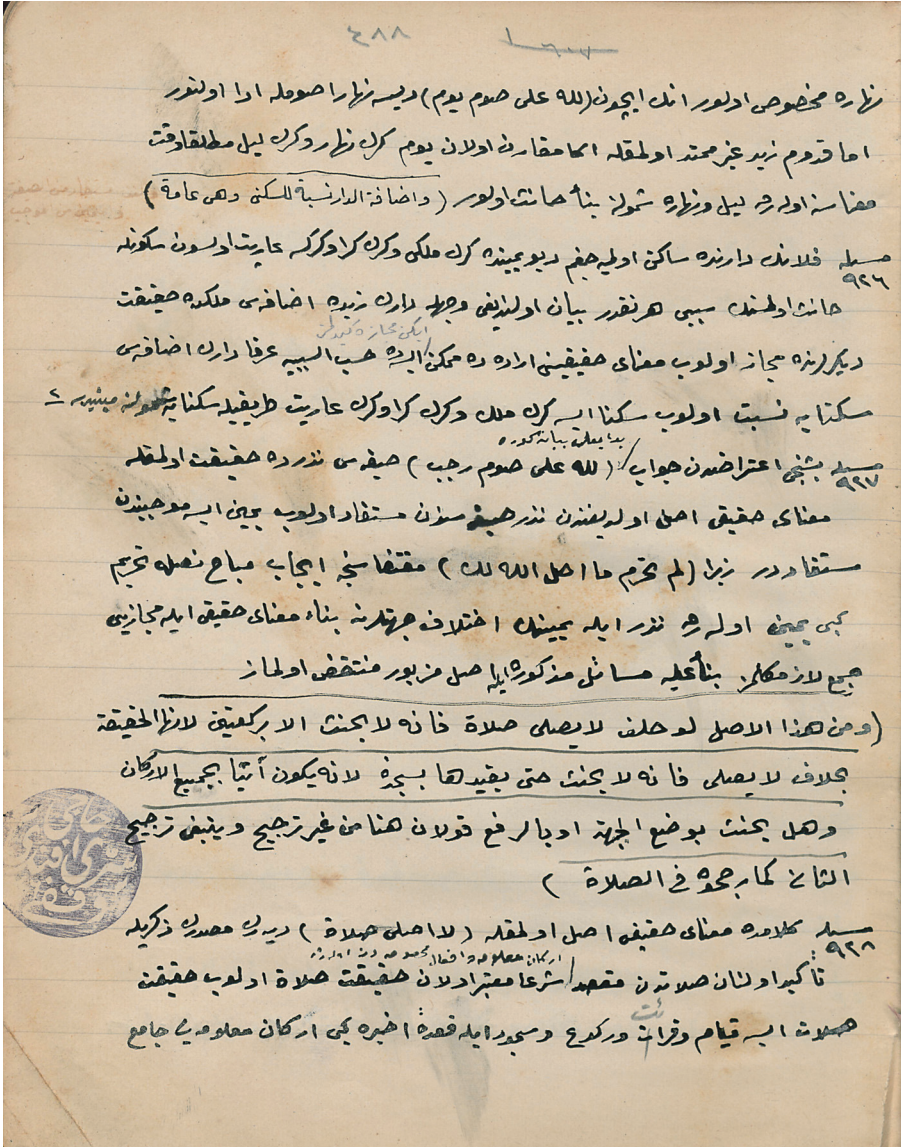 ٤٨٨
نهاره مخصوص اولور انك ايچون (لله على صوم يوم) ديسه نهارا صومله ادا اولنور
اما قدوم زيد غير ممتد اولمقله اكا مقارن اولان يوم كرك نهار وكرك ليل مطلقا وقت
معناسنه اوله رق ليل ونهاره شمولنه بنأ حانث اولور (واضافة الدار نسبة للسكنى وهى عامة)
مسئله ٩٢٦ فلانك دارنده ساكن اولميه جغم ديو يمينده كرك ملكى وكرك كرا وكركسه عاريت اولسون سكونله
حانث اولمسنك سببى هر نقدر بيان اولنديغى وجهله دارك زيده اضافه سى ملكده حقيقت
ديكرلرنده مجاز اولوب معناى حقيقيسنى اراده ده ممكن ايسه ده حسب السببيه عرفا دارك اضافه سى
سكنايه نسبت اولوب سكنا ايسه كرك ملك وكرك كرا وكرك عاريت طريقيله سكنايه شمولنه مبنيدر
مسئله ٩٢٧ بشنجى اعتراضدن جواب (لله على صوم رجب) صيغه سى نذرده حقيقت اولمقله
معناى حقيقى اصل اولديغندن نذر صيغه سندن مستفاد اولوب يمين ايسه موجبندن
مستفاددر زيرا (لم تحرم ما احل الله لك) مقتضاسنجه ايجاب مباح نصله تحريم
كبى يمين اوله رق نذر ايله يمينك اختلاف جهتلرينه بناء معناى حقيقى ايله مجازيينى
جمع لازم كلمز بنأ عليه مسائل مذكوره ايله اصل مزبور منتقض اولماز
(ومن هذا الاصل لو حلف لا يصلى صلاة فانه لا يحنث الا بركعتين لانها الحقيقة
بخلاف لا يصلى فانه لا يحنث حتى يقيدها بسجدة لانه يكون آتيا بجميع الاركان
وهل يحنث بوضع الجبهة او بالرفع قولان هنا من غير ترجيح وينبغى ترجيح
الثانى كما رجحوه فى الصلاة)
مسئله ٩٢٨ كلامده معناى حقيقى اصل اولمقله (لا اصلى صلاة) ديه رك مصدرك ذكريله
تأكيد اولنان صلاتدن مقصد شرعا معتبر اولان حقيقت صلاة اولوب حقيقت
صلات ايسه قيام وقرائت وركوع وسجود ايله قعدهٔ اخيره كبى اركان معلومه يى جامع